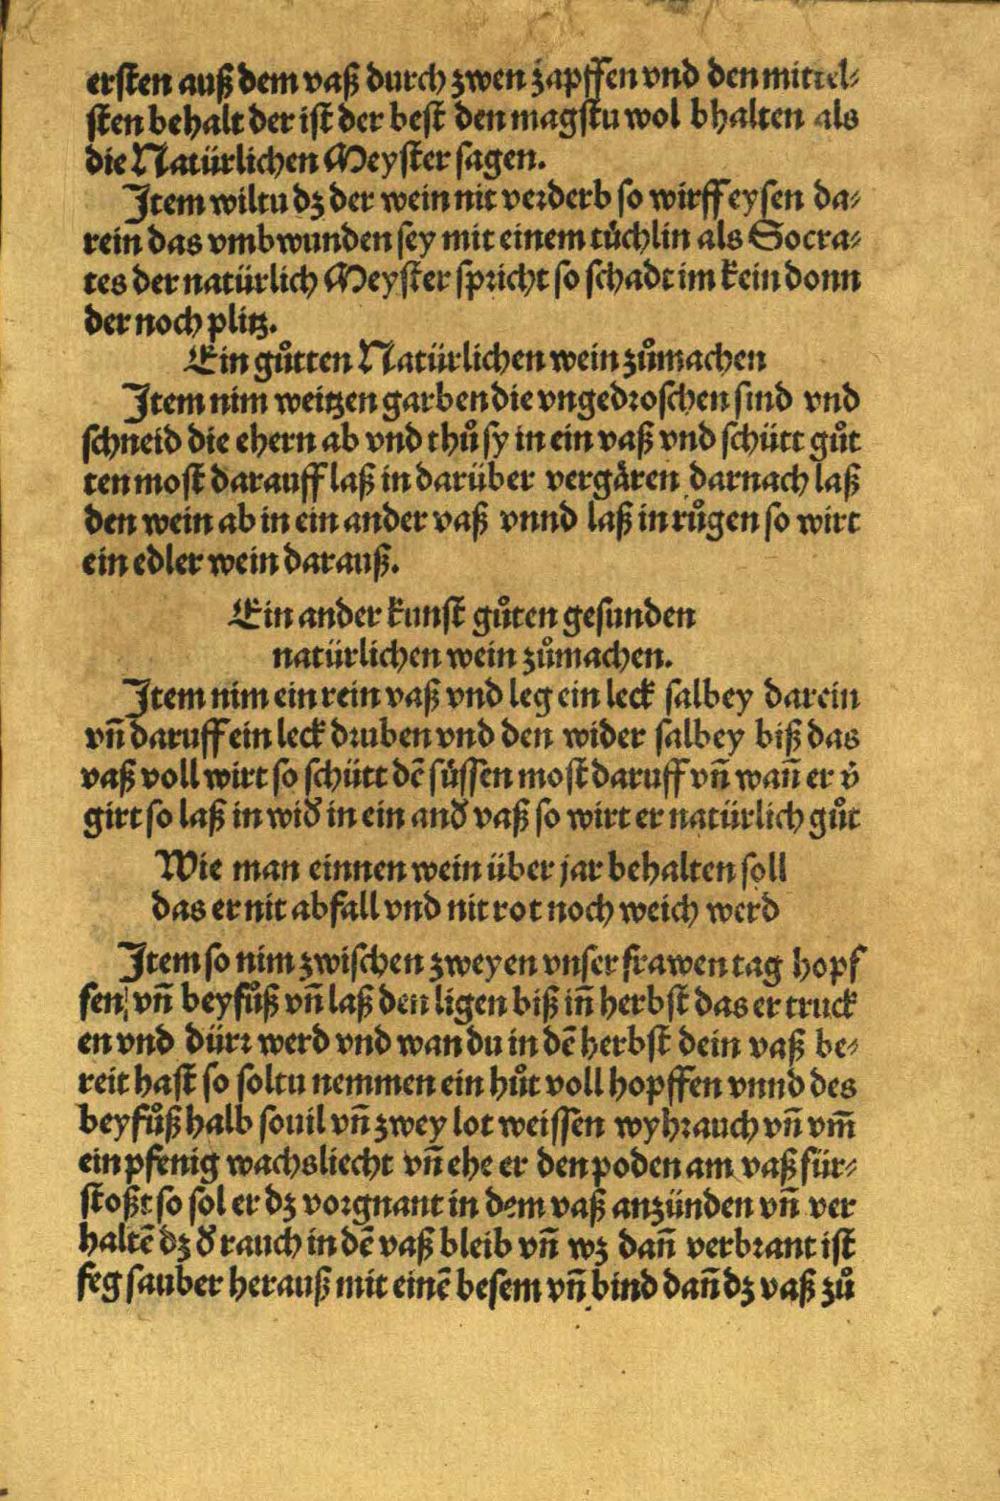 ersten auß dem vaß durch zwen zapffen vnd den mittel⸗
sten behalt der ist der best den magstu wol bhalten als
die Natürlichen Meyster sagen.
Item wiltu dz der wein nit verderb so wirff eysen da⸗
rein das vmbwunden sey mit einem tuͤchlin als Socra⸗
tes der natürlich Meyster spricht so schadt im kein donn
der noch plitz.
Ein guͦtten Natürlichen wein zuͦmachen
Item nim weitzen garben die vngedroschen sind vnd
schneid die ehern ab vnd thuͦ sy in ein vaß vnd schütt guͦt
ten most darauff laß in darüber vergaͤren darnach laß
den wein ab in ein ander vaß vnnd laß in ruͦgen so wirt
ein edler wein darauß.
Ein ander kunst guͦten gesunden
natürlichen wein zuͦmachen.
Item nim ein rein vaß vnd leg ein leck salbey darein
vn̄ daruff ein leck druben vnd den wider salbey biß das
vaß voll wirt so schütt dē suͤssen most daruff vn̄ wan̄ er v̄
girt so laß in wid̛ in ein and̛ vaß so wirt er natürlich guͦt
Wie man einnen wein über jar behalten soll
das er nit abfall vnd nit rot noch weich werd
Item so nim zwischen zweyen vnser frawen tag hopf
fen, vn̄ beyfuͦß vn̄ laß den ligen biß in̄ herbst das er truck
en vnd dürr werd vnd wan du in dē herbst dein vaß be⸗
reit hast so soltu nemmen ein huͦt voll hopffen vnnd des
beyfuͦß halb souil vn̄ zwey lot weissen wyhrauch vn̄ vm̄
ein pfenig wachsliecht vn̄ ehe er den poden am vaß für⸗
stoßt so sol er dz vorgnant in dem vaß anzünden vn̄ ver
haltē dz d̛ rauch in dē vaß bleib vn̄ wz dan̄ verbrant ist
feg sauber herauß mit einē besem vn̄ bind dan̄ dz vaß zuͦ